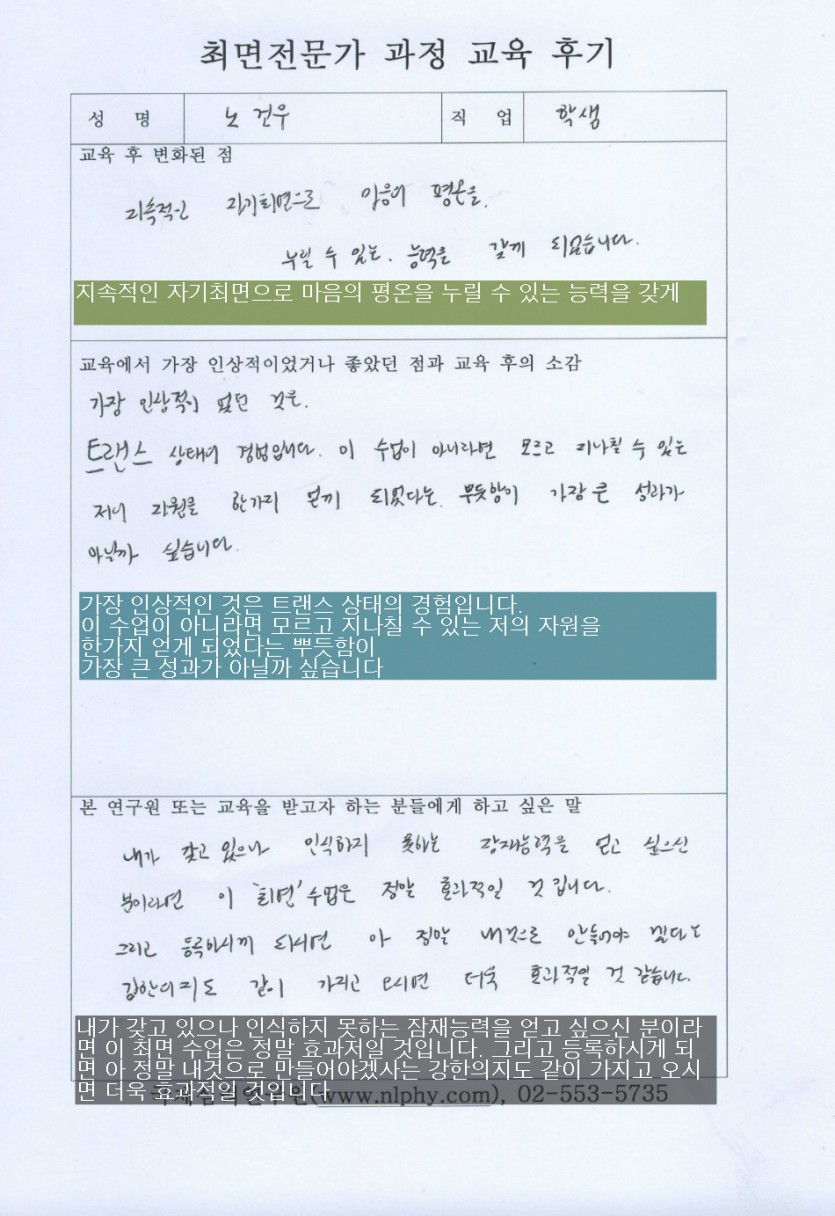 최면전문가 과정 교육 후기
성 명 노건우 직 업 학생
교육 후 변화된 점
지속적인 자기최면으로 마음의 평온을.
누릴 수 있는. 능력을 갖게 되었습니다.
지속적인 자기최면으로 마음의 평온을 누릴 수 있는 능력을 갖게
교육에서 가장 인상적이었거나 좋았던 점과 교육 후의 소감
가장 인상적이 었던 것은.
트랜스 상태의 경험입니다. 이 수업이 아니라면 모르고 지나칠 수 있는
저의 자원을 한가지 얻게 되었다는. 뿌듯함이 가장 큰 성과가
아닐까 싶습니다.
가장 인상적인 것은 트랜스 상태의 경험입니다.
이 수업이 아니라면 모르고 지나칠 수 있는 저의 자원을
한가지 얻게 되었다는 뿌듯함이
가장 큰 성과가 아닐까 싶습니다
본 연구원 또는 교육을 받고자 하는 분들에게 하고 싶은 말
내가 갖고 있으나 인식하지 못하는 잠재능력을 얻고 싶으신
분이라면 이 '최면' 수업은 정말 효과적일 것 입니다.
그리고 등록하시게 되시면 아 정말 내것으로 만들어야 겠다는
강한의지도 같이 가지고 오시면 더욱 효과적일 것 같습니다.
내가 갖고 있으나 인식하지 못하는 잠재능력을 얻고 싶으신 분이라
면 이 최면 수업은 정말 효과저일 것입니다. 그리고 등록하시게 되
면 아 정말 내것으로 만들어야겠사는 강한의지도 같이 가지고 오시
면 더욱 효과적일 것입니다
(www.nlphy.com), 02-553-5735